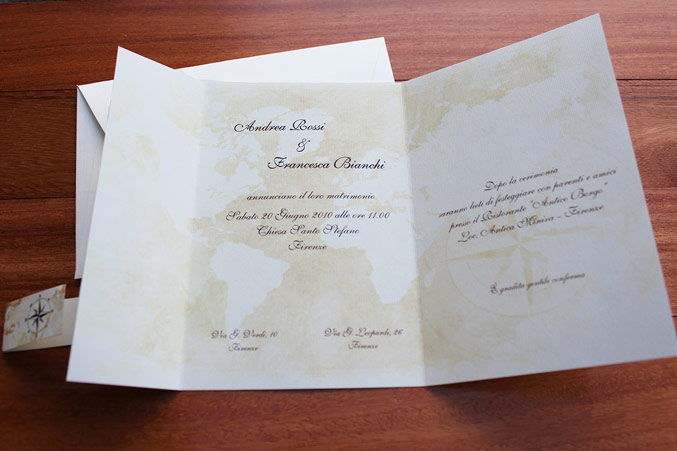 Andrea Rossi
&
Francesca Bianchi
annunciano il loro matrimonio
Sabato 20 Giugno 2010 alle ore 11.00
Chiesa Santo Stefano
Firenze
Via G. Verdi, 10
Firenze
Via G. Leopardi, 26
Firenze
Dopo la cerimonia
saranno lieti di festeggiare con parenti e amici
presso il Ristorante "Antico Borgo"
Loc. Antica Miniera - Firenze
È gradita gentile conferma